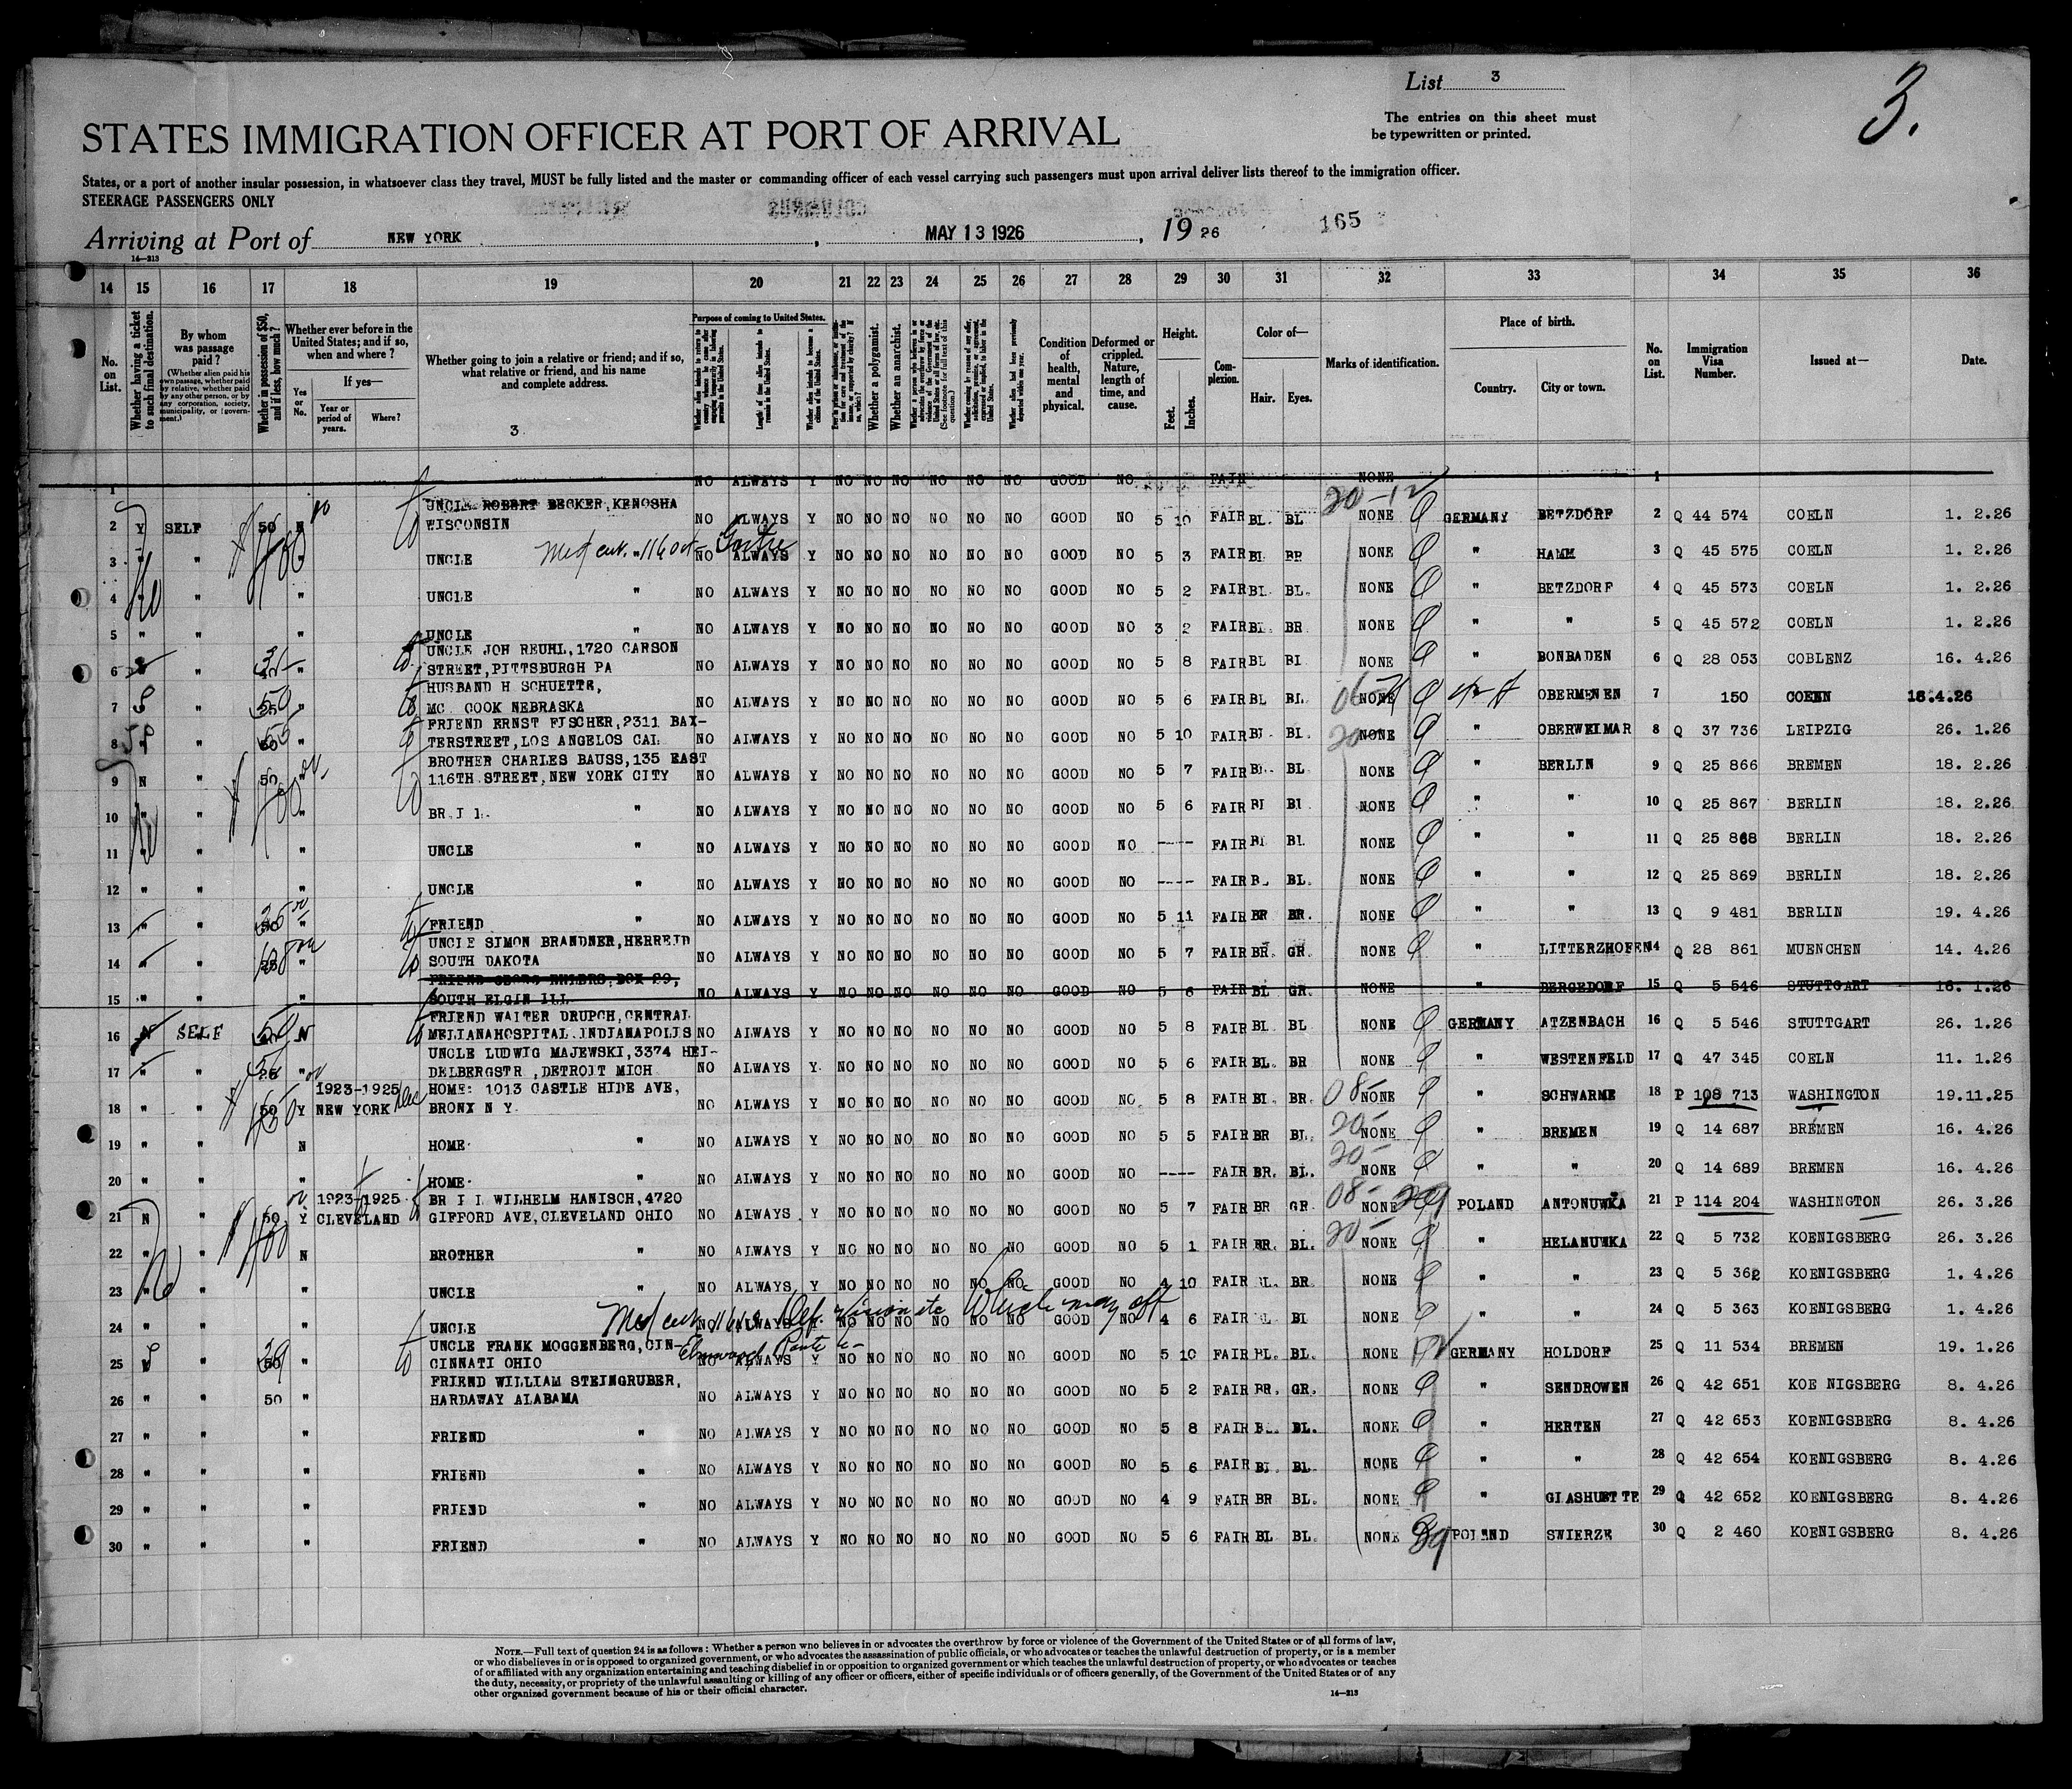 List 3
3.
The entries on this sheet must
be typewritten or printed.
STATES IMMIGRATION OFFICER AT PORT OF ARRIVAL
States, or a port of another insular possession, in whatsoever class they travel, MUST be fully listed and the master or commanding officer of each vessel carrying such passengers must upon arrival deliver lists thereof to the immigration officer.
STEERAGE PASSENGERS ONLY
Arriving at Port of NEW YORK, MAY 13 1926, 19 26 165
16—213
14 15 16 17 18 19 20 21 22 23 24 25 26 27 28 29 30 31 32 33 34 35 36
No. on List.
Whether having a ticket to such final destination.
By whom was passage paid?
(Whether alien paid his own passage, whether paid by relative, whether paid by any other person, or by any corporation, society, municipality, or government.)
Whether in possession of $50, and if less, how much?
Whether ever before in the United States; and if so, when and where?
Yes or No.
If yes—
Year or period of years.
Where?
Whether going to join a relative or friend; and if so, what relative or friend, and his name and complete address.
3
Purpose of coming to United States.
Length of time alien intends to remain in the United States.
Whether alien intends to become a citizen of the United States.
Whether a polygamist.
Whether an anarchist.
Condition of health, mental and physical.
Deformed or crippled. Nature, length of time, and cause.
Height.
Feet.
Inches.
Complexion.
Color of—
Hair.
Eyes.
Marks of identification.
Place of birth.
Country.
City or town.
No. on List.
Immigration Visa Number.
Issued at—
Date.
1 NO ALWAYS Y NO NO NO NO NO NO GOOD NO FAIR NONE 1
2 Y SELF 50 N UNCLE ROBERT BECKER, KENOSHA
WISCONSIN NO ALWAYS Y NO NO NO NO NO NO GOOD NO 5 10 FAIR BL. BL NONE GERMANY BETZDORF 2 Q 44 574 COELN 1. 2.26
3 " " " UNCLE " NO ALWAYS Y NO NO NO NO NO NO GOOD NO 5 3 FAIR BL BR NONE " HAMM 3 Q 45 575 COELN 1. 2.26
4 " " " UNCLE " NO ALWAYS Y NO NO NO NO NO NO GOOD NO 5 2 FAIR BL. BL. NONE " BETZDORF 4 Q 45 573 COELN 1. 2.26
5 " " " UNCLE " NO ALWAYS Y NO NO NO NO NO NO GOOD NO 3 2 FAIR BL. BR NONE " " 5 Q 45 572 COELN 1. 2.26
6 " " UNCLE JOH REUHL, 1720 CARSON
STREET, PITTSBURGH PA NO ALWAYS Y NO NO NO NO NO NO GOOD NO 5 8 FAIR BL BL NONE " BONBADEN 6 Q 28 053 COBLENZ 16. 4.26
7 " 50 " HUSBAND H SCHUETTE,
MC. COOK NEBRASKA NO ALWAYS Y NO NO NO NO NO NO GOOD NO 5 6 FAIR BL BL. NONE OBERMENEN 7 150 COELN 16.4.26
8 " " FRIEND ERNST FISCHER, 2311 BAX-
TERSTREET, LOS ANGELOS CAL. NO ALWAYS Y NO NO NO NO NO NO GOOD NO 5 10 FAIR BL. BL. NONE " OBERWEIMAR 8 Q 37 736 LEIPZIG 26. 1.26
9 N " 50 BROTHER CHARLES BAUSS, 135 EAST
116TH STREET, NEW YORK CITY NO ALWAYS Y NO NO NO NO NO NO GOOD NO 5 7 FAIR BL. BL NONE " BERLIN 9 Q 25 866 BREMEN 18. 2.26
10 " " " BR. I L. " NO ALWAYS Y NO NO NO NO NO NO GOOD NO 5 6 FAIR BL BL NONE " " 10 Q 25 867 BERLIN 18. 2.26
11 " " UNCLE " NO ALWAYS Y NO NO NO NO NO NO GOOD NO ---- FAIR BL BL NONE " " 11 Q 25 868 BERLIN 18. 2.26
12 " " " UNCLE " NO ALWAYS Y NO NO NO NO NO NO GOOD NO ---- FAIR BL. NONE " " 12 Q 25 869 BERLIN 18. 2.26
13 " " FRIEND " NO ALWAYS Y NO NO NO NO NO NO GOOD NO 5 11 FAIR BR BR. NONE " " 13 Q 9 481 BERLIN 19. 4.26
14 " " " UNCLE SIMON BRANDNER, HERREID
SOUTH DAKOTA NO ALWAYS Y NO NO NO NO NO NO GOOD NO 5 7 FAIR BR. GR. NONE " LITTERZHOFEN 14 Q 28 861 MUENCHEN 14. 4.26
15 " " " FRIEND GEORG EHLERS, BOX 29,
SOUTH ELGIN ILL NO ALWAYS Y NO NO NO NO NO NO GOOD NO 5 6 FAIR BL GR. NONE " BERGEDORF 15 Q 5 546 STUTTGART 16. 1.26
16 N SELF 50 N FRIEND WALTER DRUPCH, CENTRAL
MELIANAHOSPITAL. INDIANAPOLIS NO ALWAYS Y NO NO NO NO NO NO GOOD NO 5 8 FAIR BL BL NONE GERMANY ATZENBACH 16 Q 5 546 STUTTGART 26. 1.26
17 " " " UNCLE LUDWIG MAJEWSKI, 3374 HEI-
DELBERGSTR, DETROIT MICH NO ALWAYS Y NO NO NO NO NO NO GOOD NO 5 6 FAIR BL. BR NONE " WESTENFELD 17 Q 47 345 COELN 11. 1.26
18 " " 50 Y 1923-1925 NEW YORK HOME: 1013 CASTLE HIDE AVE,
BRONX N Y. NO ALWAYS Y NO NO NO NO NO NO GOOD NO. 5 8 FAIR BL. BR. 08- NONE " SCHWARME 18 P 108 713 WASHINGTON 19.11.25
19 " " N HOME. " NO ALWAYS Y NO NO NO NO NO NO GOOD NO 5 5 FAIR BR BL. 20- NONE " BREMEN 19 Q 14 687 BREMEN 16. 4.26
20 " " " HOME. " NO ALWAYS Y NO NO NO NO NO NO GOOD NO ---- FAIR BR. BL. 20- NONE " " 20 Q 14 689 BREMEN 16. 4.26
21 N " 50 Y 1923-1925 CLEVELAND BR I L WILHELM HANISCH, 4720
GIFFORD AVE, CLEVELAND OHIO NO ALWAYS Y NO NO NO NO NO NO GOOD NO 5 7 FAIR BR GR. 08- NONE POLAND ANTONUWKA 21 P 114 204 WASHINGTON 26. 3.26
22 " " N BROTHER " NO ALWAYS Y NO NO NO NO NO NO GOOD NO 5 1 FAIR BR. BL. 20- NONE " HELANUWKA 22 Q 5 732 KOENIGSBERG 26. 3.26
23 " " " UNCLE " NO ALWAYS Y NO NO NO NO NO NO GOOD NO 4 10 FAIR BR NONE " " 23 Q 5 362 KOENIGSBERG 1. 4.26
24 " " " UNCLE " NO ALWAYS Y NO NO NO NO NO NO GOOD NO 4 6 FAIR BL NONE " " 24 Q 5 363 KOENIGSBERG 1. 4.26
25 " " UNCLE FRANK MOGGENBERG, CIN-
CINNATI OHIO NO ALWAYS Y NO NO NO NO NO NO GOOD NO 5 10 FAIR BL. BL. NONE GERMANY HOLDORF 25 Q 11 534 BREMEN 19. 1.26
26 " " 50 " FRIEND WILLIAM STEINGRUBER,
HARDAWAY ALABAMA NO ALWAYS Y NO NO NO NO NO NO GOOD NO 5 2 FAIR BR. GR. NONE " SENDROWEN 26 Q 42 651 KOE NIGSBERG 8. 4.26
27 " " " FRIEND " NO ALWAYS Y NO NO NO NO NO NO GOOD NO 5 8 FAIR BL. BL. NONE " HERTEN 27 Q 42 653 KOENIGSBERG 8. 4.26
28 " " " FRIEND " NO ALWAYS Y NO NO NO NO NO NO GOOD NO 5 6 FAIR BL. BL. NONE " " 28 Q 42 654 KOENIGSBERG 8. 4.26
29 " " " FRIEND " NO ALWAYS Y NO NO NO NO NO NO GOOD NO 4 9 FAIR BR BL. NONE " GLASHUETTE 29 Q 42 652 KOENIGSBERG 8. 4.26
30 " " " FRIEND " NO ALWAYS Y NO NO NO NO NO NO GOOD NO 5 6 FAIR BL BL. NONE POLAND SWIERZE 30 Q 2 460 KOENIGSBERG 8. 4.26
NOTE.—Full text of question 24 is as follows: Whether a person who believes in or advocates the overthrow by force or violence of the Government of the United States or of all forms of law,
or who disbelieves in or is opposed to organized government, or who advocates the assassination of public officials, or who advocates or teaches the unlawful destruction of property, or is a member
of or affiliated with any organization entertaining and teaching disbelief in or opposition to organized government or which teaches the unlawful destruction of property, or who advocates or teaches
the duty, necessity, or propriety of the unlawful assaulting or killing of any officer or officers, either of specific individuals or of officers generally, of the Government of the United States or of any
other organized government because of his or their official character.
16—213